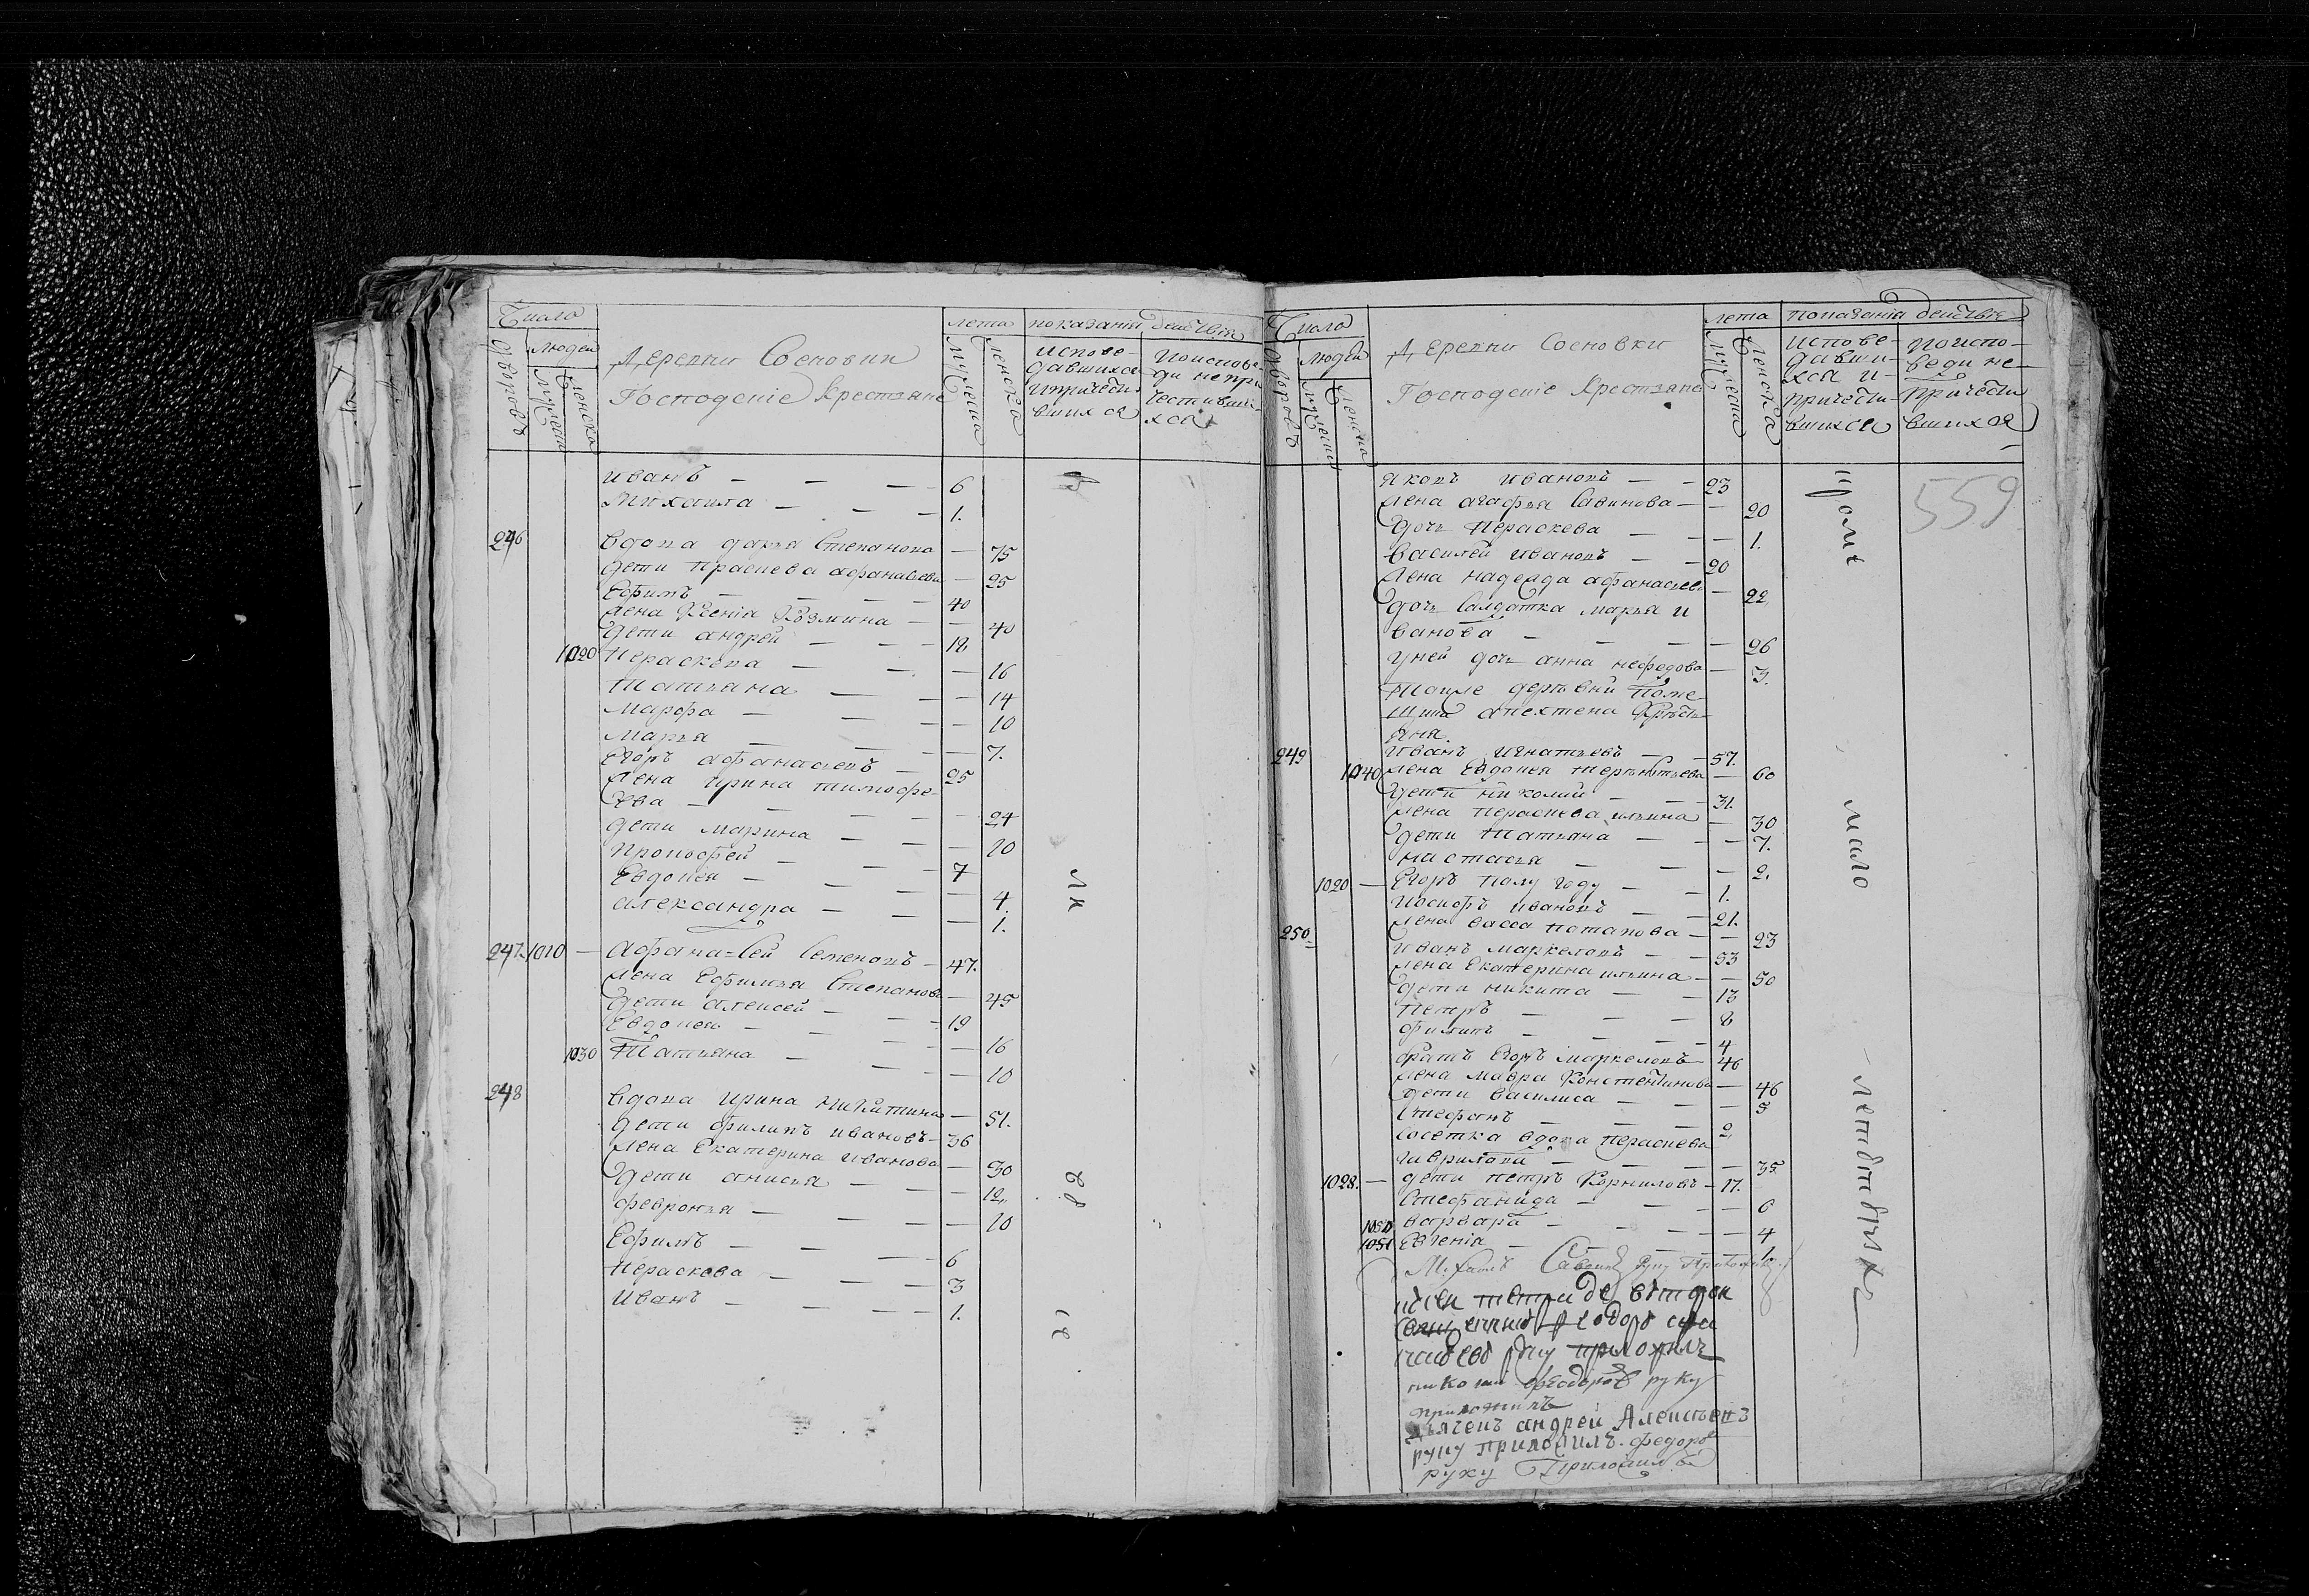 Число
Людей
дворовъ
мужеска
женска
Деревни Сосновки
Господские Крестьяне
лета
мужеска
женска
показания действия
испове-
давшихся
и причасти-
вшихся
по испове-
ди не при-
частивши-
хся
иванъ — — — 6
Михаила — — — 1.
246 вдова дарья Степанова — 75
дети праскева афанасьева — 25
Ефимъ — — — 40
жена Ксения Козмина — 40
дети андрей — — 18
1020 пераскева — — 16
татьяна — — 14
марфа — — — 10
марья — — — 7.
Егоръ афанасьевъ — 25
жена ирина тимофе-
ева — — — 24
дети марина — — 10
прокофей — — 7
Евдокея — — — 4
александра — — — 1.
247. 1010 — афанасей Семеновъ — 47.
жена Ефимья Степанова — 45
дети алексей — — 19
Евдокея — — — 16
1030 татьяна — — — 10
248 вдова ирина никитина — 51.
дети филипъ ивановъ — 36
жена Екатерина иванова — 30
дети анисья — — 12.
февронья — — — 10
Ефимъ — — — 6
пераскева — — — 3
иванъ — — — 1.
Число
Людей
дворовъ
мужеска
женска
Деревни Сосновки
Господские Крестьяне
лета
мужеска
женска
показания действия
испове-
давши-
хся и
причасти-
вшихся
по испо-
веди не
причасти
вшихся
559
яковъ ивановъ — — 23
жена агафья Савинова — 20
дочь пераскева — — 1.
василей ивановъ — — 20
жена надежда афанасьева — 22
дочь Салдатка марья и
ванова — — — 26
у ней дочь анна нефедова — 3.
тоиже деревни поме-
щика апехтена Крестья
яня
249 иванъ игнатьевъ — 57.
1040 жена Евдокея терентьева — 60
дети николай — — 31.
жена пераскева ильина — 30
дети татьяна — — 7.
настасья — — — 2.
1020 — Егоръ полу году — — 1.
иосифъ ивановъ — — 21.
жена васса потапова — 23
250. иванъ маркеловъ — — 53
жена Екатерина ильина — 50
дети никита — — 13
петръ — — — 8
филипъ — — — 4
братъ Егоръ маркеловъ — 46
жена мавра Константинова — 46
дети василиса — — 5
Стефанъ — — — 2.
Соседка вдова пераскева
гаврилова — — — 35
1028. — дети петръ Корниловъ — 17.
Стефанида — — — 6
1050 варвара — — — 4
1051 Евгения — — — 1.
феодоръ
руку приложилъ
феодоровъ руку
приложилъ
дьячекъ андрей Алексѣевъ
руку приложилъ. федоръ
руку Приложилъ